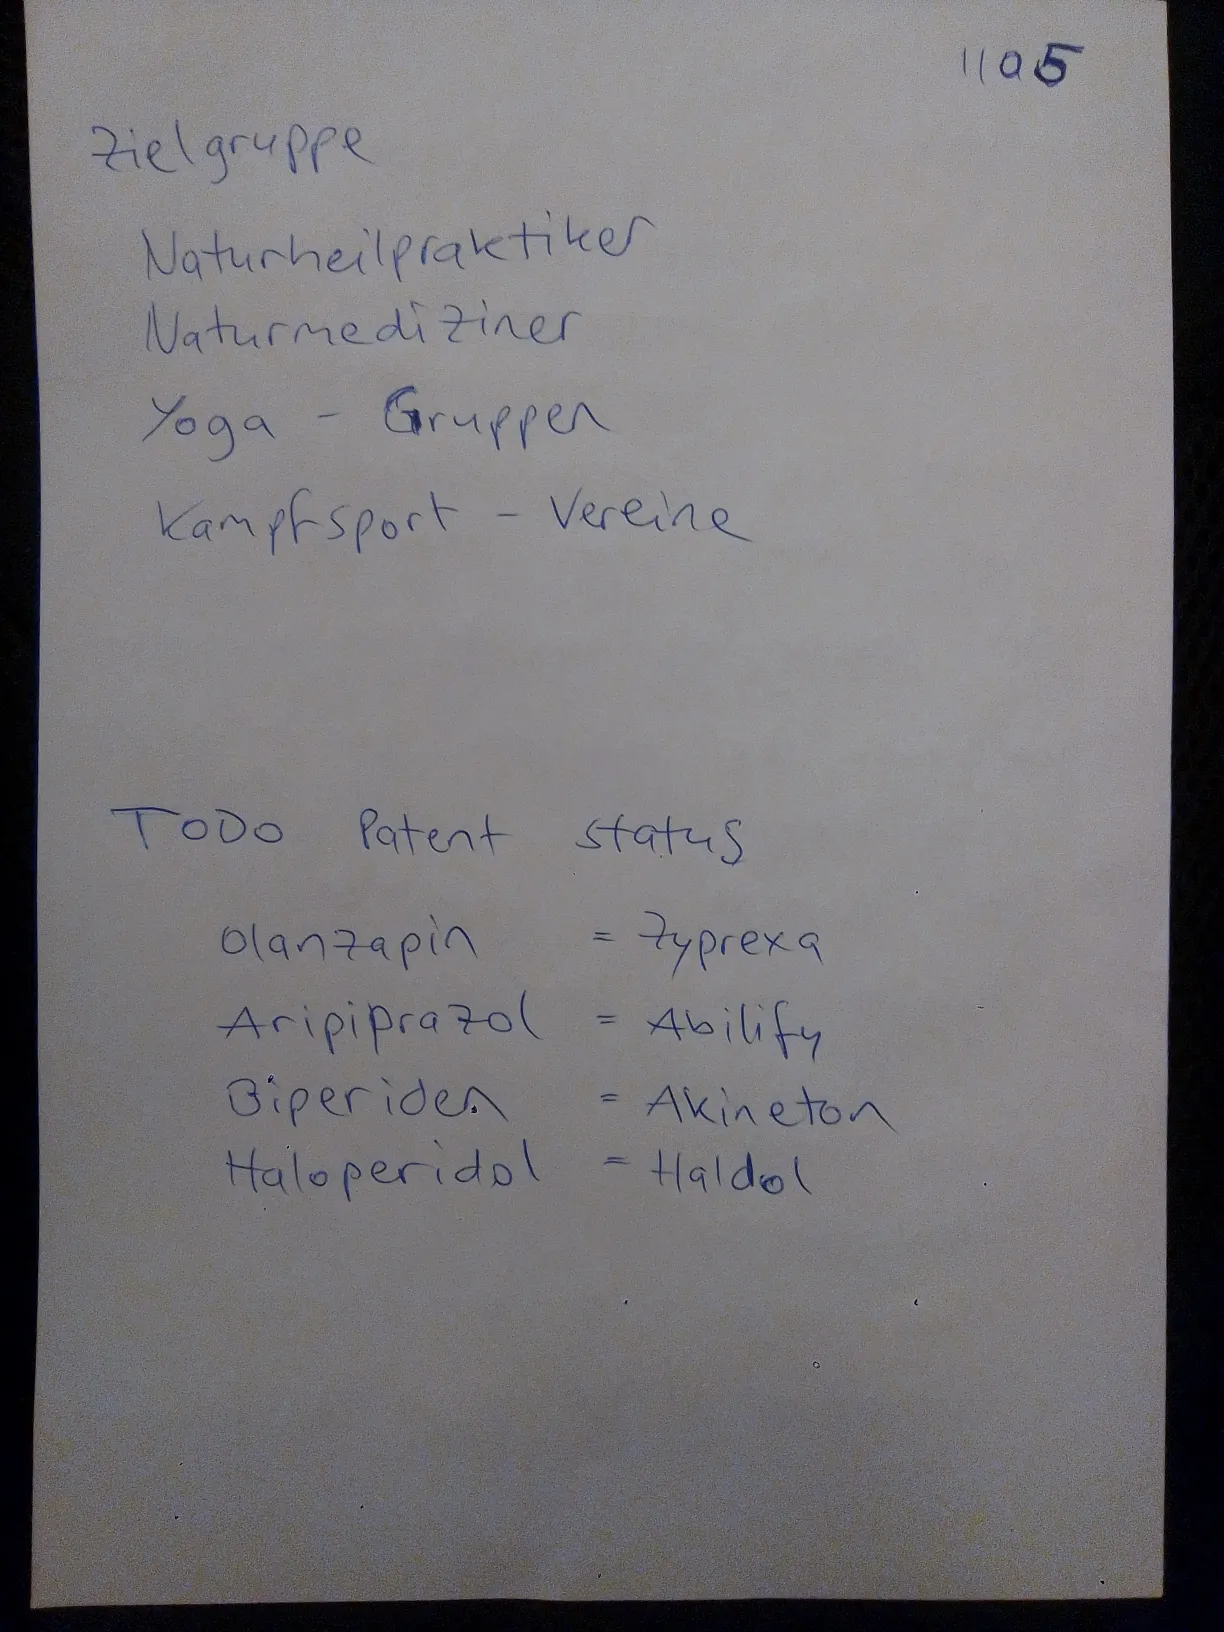 1105
Zielgruppe
Naturheilpraktiker
Naturmediziner
Yoga - Gruppen
Kampfsport - Vereine
TODO Patent status
Olanzapin = Zyprexa
Aripiprazol = Abilify
Biperiden = Akineton
Haloperidol = Haldol